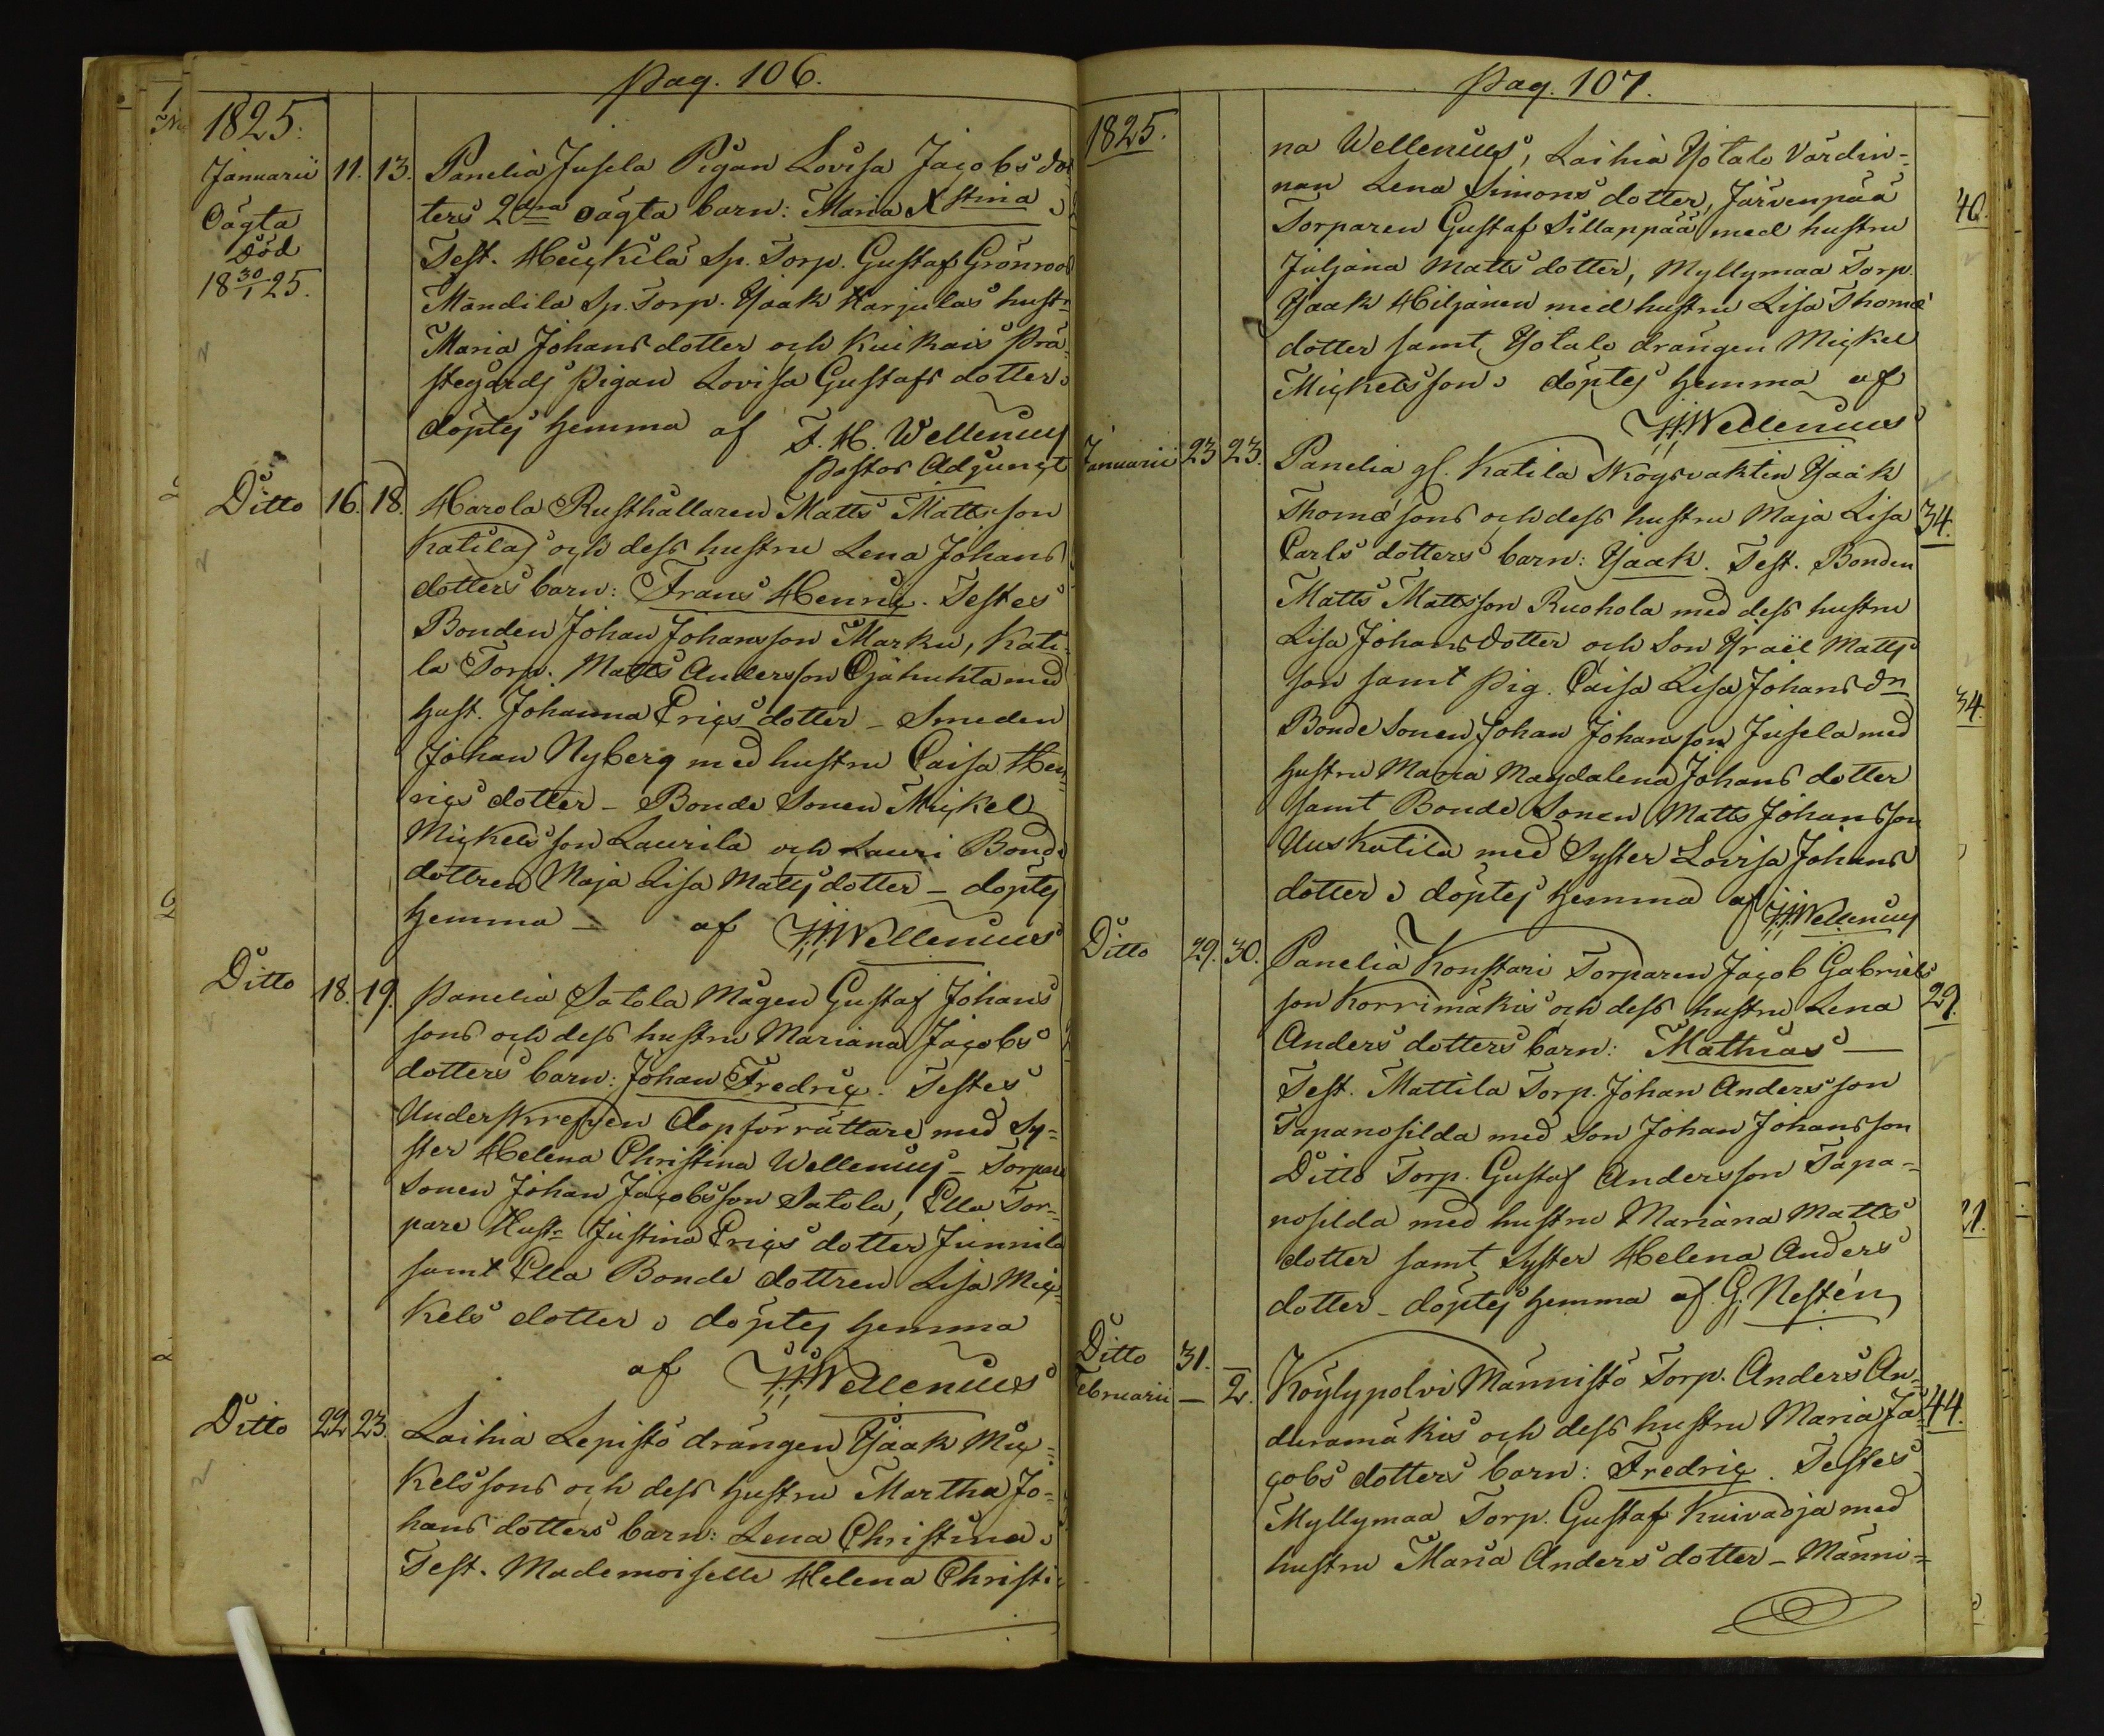 Pag. 106.
1825.
Januarii 11. 13. Panelia Jusela Pigan Lovisa Jacobs dot
Oägta
död
18 30/1 25.
ters 2dra oägta barn: Maria Xstina
Test. Heickilä Sp. Torp. Gustaf Grönroos
Mandila Sp. Torp. Isaak Harjulas hustr
Maria Johans dotter och Kuikais Prä-
stegårds Pigan Lovisa Gustafs dotter.
döptes hemma af F. H. Wellenius
Pastors Adjunct
Ditto 16. 18. Harola Rusthållaren Matts Mattsson
Katilas och dess hustru Lena Johans
dotters barn: Frans Henric. Testes
Bonden Johan Johansson Marku, Kati-
la Torp. Matts Andersson Ojahuhta med
hust. Johanna Erics dotter - Smeden
Johan Nyberg med hustru Caisa Hen-
rics dotter - Bonde Sonen Mickel
Mickelsson Laurila och Lauri Bonde
dottren Maja Lisa Matts dotter - döptes
hemma - af F.H. Wellenius
Ditto 18. 19. Panelia Satola Mågen Gustaf Johans
sons och dess hustru Mariana Jacobs
dotters barn: Johan Fredric. Testes
Underskrefven dopförrättare med Sy-
ster Helena Christina Wellenius - Torpare
Sonen Johan Jacobsson Satola, Ella Tor-
pare Hustr Justina Erics dotter Junnila
samt Ella Bonde dottren Lisa Mic-
kels dotter. döptes hemma
af F.H. Wellenius
Ditto 22 23. Laihia Lepistö drängen Isaak Mic-
kelssons och dess hustru Martha Jo-
hans dotters barn: Lena Christina.
Test. Mademoiselle Helena Christi-
Pag. 107.
1825.
na Wellenius, Laihia Isotalo Värdin-
nan Lena Simons dotter, Järvenpää
Torparen Gustaf Sillanpää med hustru
Juljana Matts dotter, Myllymaa Torp.
Isaak Hiljanen med hustru Lisa Thomæ
dotter samt Isotalo drängen Mickel
Mickelsson. döptes hemma af
F.H. Wellenius
Januarii 23 23. Panelia gl. Katila Skogvaktin Isaak
Thomæsons och dess hustru Maja Lisa 34.
Carls dotters barn: Isaak. Test. Bonden
Matts Mattsson Ruohola med dess hustru
Lisa Johans dotter och Son Israël Matts
son samt Pig. Caisa Lisa Johans dr
Bonde Sonen Johan Johansson Jusela med
hustru Maria Magdalena Johans dotter
samt Bonde Sonen Matts Johansson
Uus Katila med Syster Lovisa Johans
dotter. döptes hemma af F.H. Wellenius
Ditto 29. 30. Panelia Konstari Torparen Jacob Gabriels
son Korrimäkis och dess hustru Lena 29.
Anders dotters barn: Mathias -
Test. Mattila Torp. Johan Andersson
Tapanosilda med Son Johan Johansson
Ditto Torp. Gustaf Andersson Tapa-
nosilda med hustru Mariana Matts
dotter samt Syster Helena Anders
dotter - döptes hemma af G. Nestén
Ditto 31.
Februarii - 2. Köylypolvi Männistö Torp. Anders An-
duramäkis och dess hustru Maria Ja- 44.
cobs dotters barn: Fredric. Testes
Myllymaa Torp. Gustaf Kuivaoja med
hustru Maria Anders dotter - Männi-
40.
34.
21.